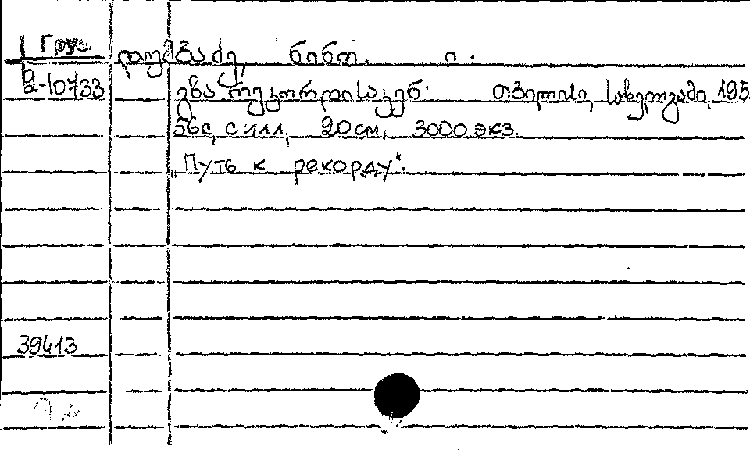 Груз. დუმბაძე, ნინო. ი.
2-10733 გზა რეკორდისაკენ. თბილისი, სახელგამი, 195
56с, с илл, 20см, 3000 экз.
„Путь к рекорду".
39413